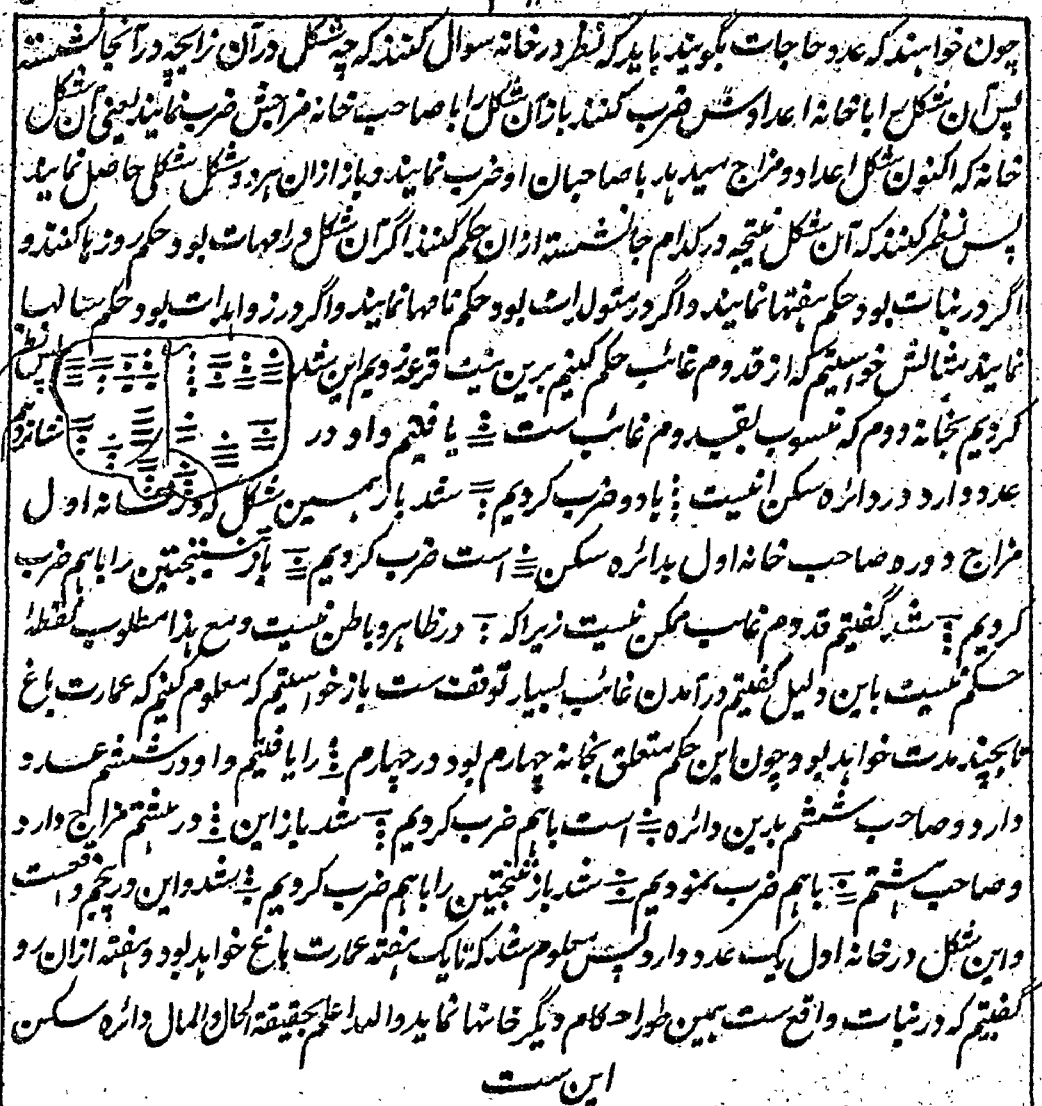 چون خواهند که عدد حاجات بگویند باید که نظر در خانه سوال کنند که چه شکل در آن زایچه در آنجا نشسته
پس آن شکل را با خانه اعدادش ضرب کنند باز آن شکل را با صاحب خانه مزاجش ضرب نمایند یعنی آن شکل
خانه که اکنون شکل اعداد و مزاج میدهد با صاحبان او ضرب نمایند و باز ازان هر دو شکل شکلی حاصل نمایند
پس نظر کنند که آن شکل نتیجه در کدام جا نشسته ازان حکم کنند اگر آن شکل در امهات بود حکم روزها کنند و
اگر در بنات بود حکم هفتها نمایند و اگر در متولدات بود حکم ماهها نمایند و اگر در زوایدات بود حکم سالها
نمایند مثالش خواستیم که از قدوم غائب حکم کنیم برین نیت قرعه زدیم این شد پس نظر
کردیم بخانه دوم که منسوب بقدوم غائب ست یافتیم و او در شانزدهم
عدد دارد در دائره سکن انیست با دو ضرب کردیم شد باز همین شکل که در خانه اول
مزاج دوره صاحب خانه اول بدائره سکن است ضرب کردیم باز نتیجتین را باهم ضرب
کردیم شد گفتیم قدوم غائب ممکن نیست زیرا که در ظاهر و باطن نیست و مع هذا مطلوب نقطهٔ
حکم نیست باین دلیل گفتیم در آمدن غائب بسیار توقف ست باز خواستیم که معلوم کنیم که عمارت باغ
تا بچند مدت خواهد بود چون این حکم متعلق بخانه چهارم بود در چهارم را یافتیم و او در ششم عدد
دارد و صاحب ششم بدین دائره است باهم ضرب کردیم شد باز این در هشتم مزاج دارد
و صاحب هشتم باهم ضرب نمودیم شد باز نتیجتین را باهم ضرب کردیم شد و این در پنجم واقعست
و این شکل در خانه اول یک عدد دارد پس معلوم شد که تا یک هفته عمارت باغ خواهد بود و هفته ازان رو
گفتیم که در بنات واقع ست بهمین طور احکام دیگر خانها نماید والله اعلم بحقیقة الحال والمال دائره سکن
این ست